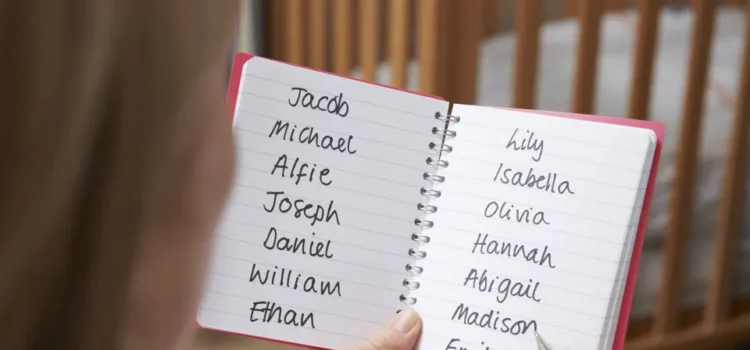 Jacob
Michael
Alfie
Joseph
Daniel
William
Ethan
Lily
Isabella
Olivia
Hannah
Abigail
Madison